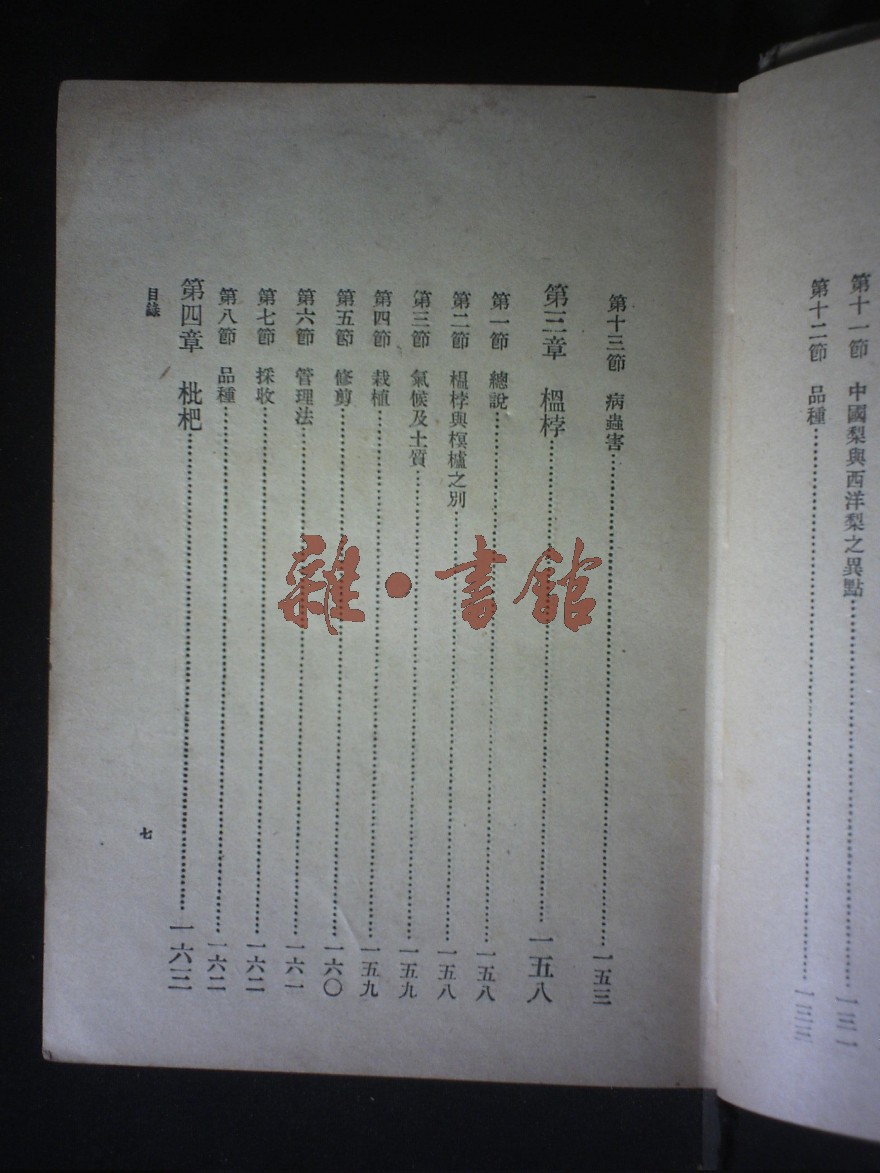 第十一節　中國梨與西洋梨之異點……一三一
第十二節　品種……一三三
第十三節　病蟲害……一五三
第三章　榲桲……一五八
第一節　總說……一五八
第二節　榲桲與榠樝之別……一五八
第三節　氣候及土質……一五九
第四節　栽植……一五九
第五節　修剪……一六〇
第六節　管理法……一六一
第七節　採收……一六二
第八節　品種……一六二
第四章　枇杷……一六三
目錄
七
雜·書館